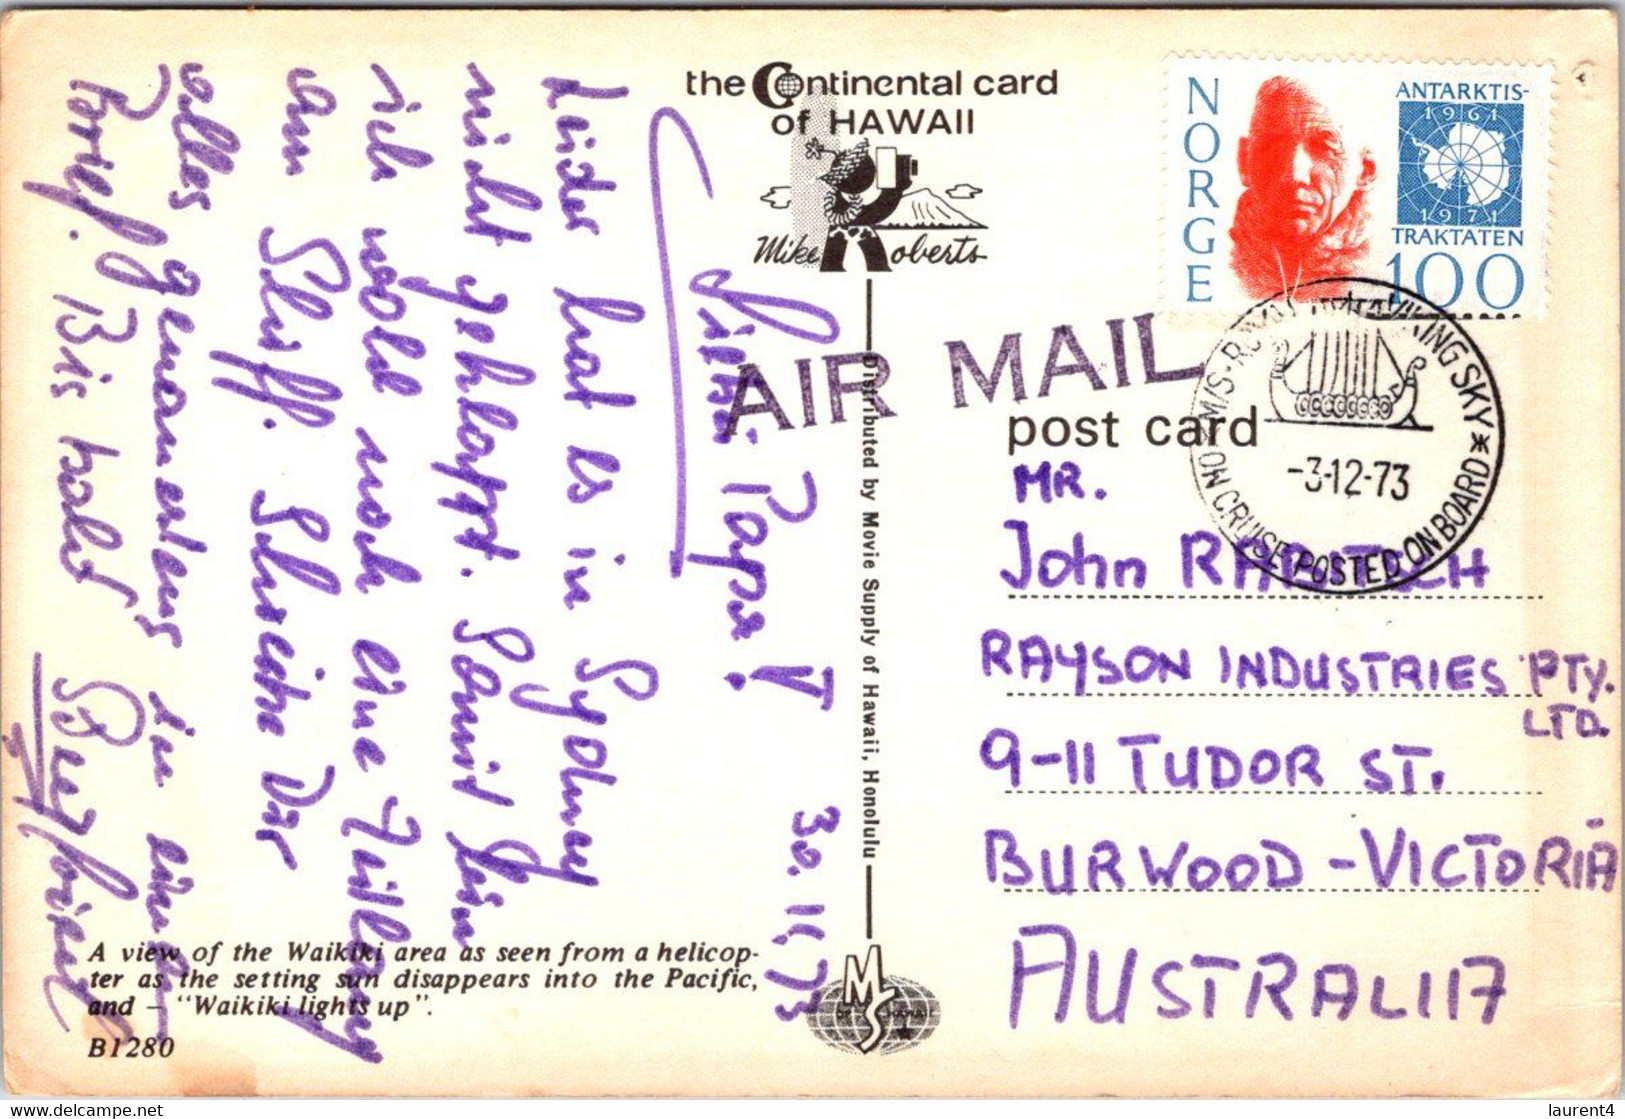 the Continental card
of HAWAII
Mike Roberts
NORGE
ANTARKTIS-
1961
1971
TRAKTATEN
100
AIR MAIL
post card
M/S ROYAL VIKING SKY
-3.12.73
ON CRUISE POSTED ON BOARD
Distributed by Movie Supply of Hawaii, Honolulu
30.11.73
Lieber Papa!
Leider hat es in Sydney
nicht geklappt. Somit bin
ich wohl noch eine
am Schiff. Schreibe Dir
alles genauestens in einem
Brief. Bis bald
MR.
John RABITSCH
RAYSON INDUSTRIES PTY.
LTD.
9-11 TUDOR ST.
BURWOOD - VICTORIA
AUSTRALIA
A view of the Waikiki area as seen from a helicop-
ter as the setting sun disappears into the Pacific,
and - "Waikiki lights up".
B1280
MS
OF HAWAII
delcampe.net
laurent4